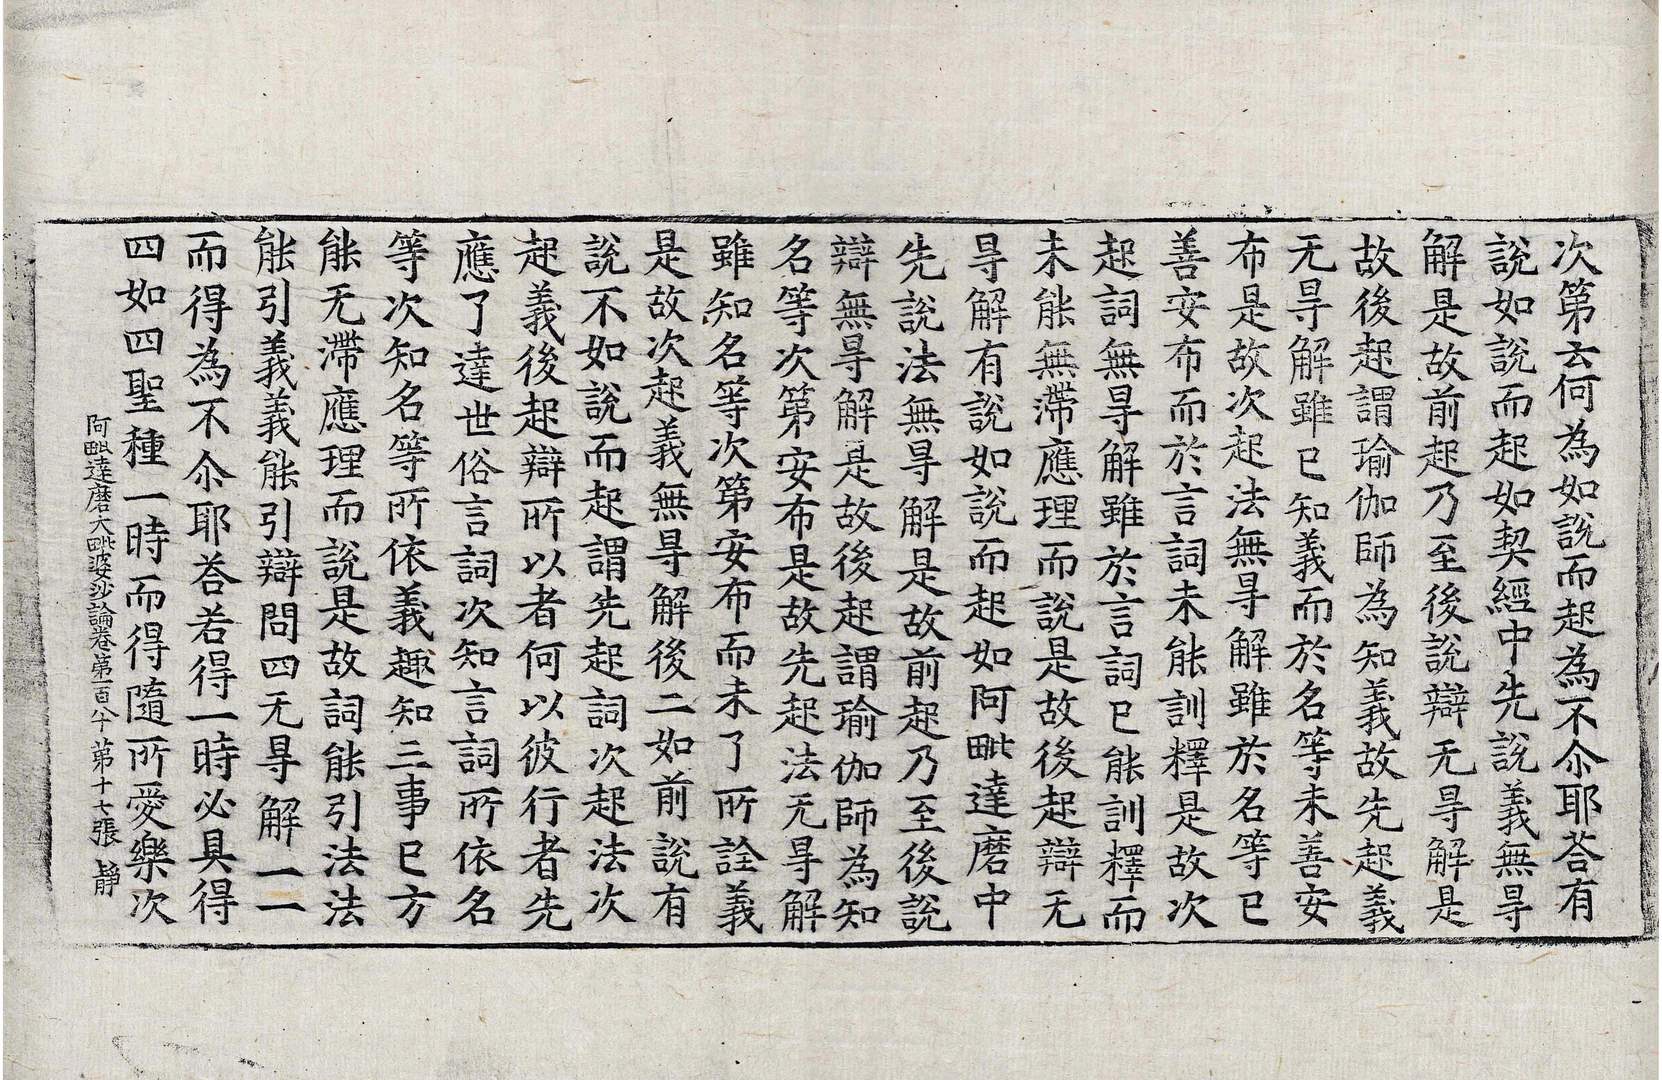 次第云何為如說而起為不尒耶荅有
說如說而起如契經中先說義無㝵
解是故前起乃至後說辯无㝵解是
故後起謂瑜伽師為知義故先起義
无㝵解雖已知義而於名等未善安
布是故次起法無㝵解雖於名等已
善安布而於言詞未能訓釋是故次
起詞無㝵解雖於言詞已能訓釋而
未能無滯應理而說是故後起辯无
㝵解有說如說而起如阿毗達磨中
先說法無㝵解是故前起乃至後說
辯無㝵解是故後起謂瑜伽師為知
名等次第安布是故先起法无㝵解
雖知名等次第安布而未了所詮義
是故次起義無㝵解後二如前說有
說不如說而起謂先起詞次起法次
起義後起辯所以者何以彼行者先
應了達世俗言詞次知言詞所依名
等次知名等所依義趣知三事已方
能无滯應理而說是故詞能引法法
能引義義能引辯問四无㝵解一一
而得為不尒耶荅若得一時必具得
四如四聖種一時而得隨所愛樂次
阿毗達磨大毗婆沙論卷第一百八十 第十七張 靜